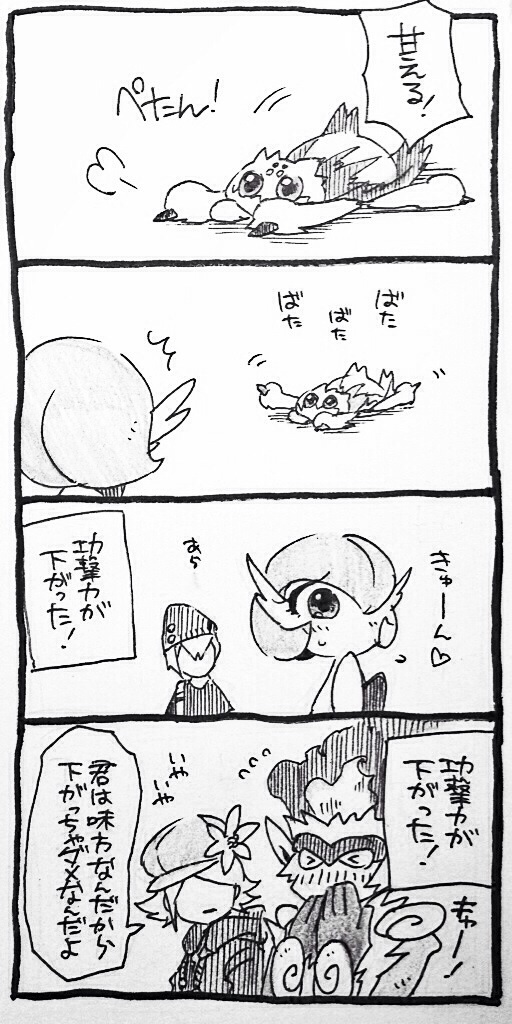 甘える!
ぺたん!
ばた
ばた
ばた
きゅーん♡
あら
功撃力が
下がった!
功撃力が
下がった!
ちゃー!
いや
いや
君は味方なんだから
下がっちゃダメなんだよ